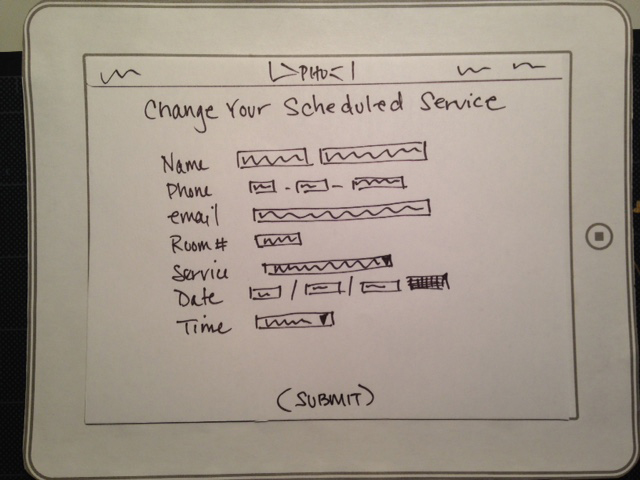 Change Your Scheduled Service
Name
Phone - -
email
Room #
Service
Date / /
Time
(SUBMIT)